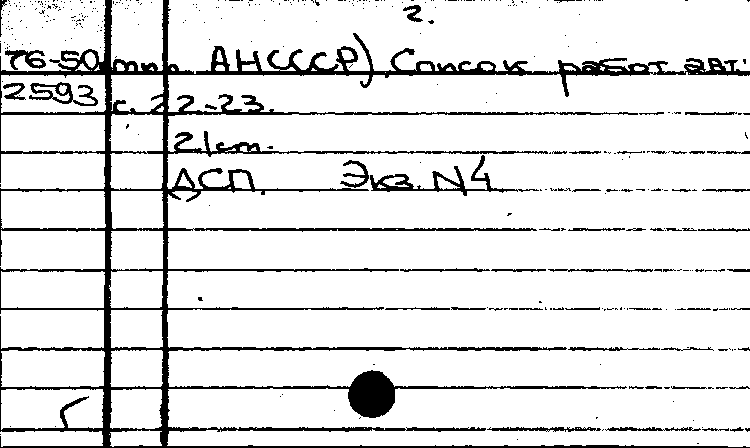 2.
76-50 тип. АН СССР). Список работ авт.:
2593 с. 22-23.
21 cm.
ДСП. Экз. N4